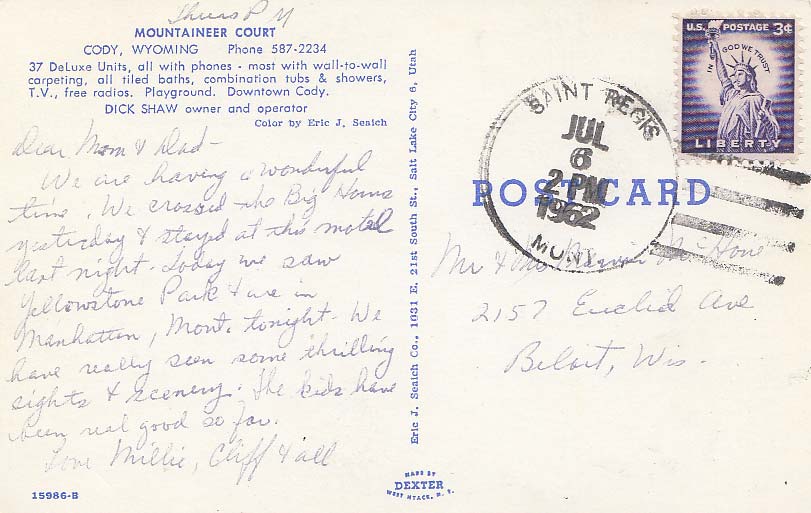 Thurs P M
MOUNTAINEER COURT
CODY, WYOMING Phone 587-2234
37 DeLuxe Units, all with phones - most with wall-to-wall
carpeting, all tiled baths, combination tubs & showers,
T.V., free radios. Playground. Downtown Cody.
DICK SHAW owner and operator
Color by Eric J. Seaich
Dear Mom & Dad-
We are having a wonderful
time. We crossed the Big Horns
yesterday & stayed at this motel
last night. Today we saw
Yellowstone Park & are in
Manhattan, Mont. tonight. We
have really seen some thrilling
sights & scenery. The kids have
been real good so far.
Love Millie, Cliff & all
15986-B
Eric J. Seaich Co., 1031 E. 21st South St., Salt Lake City 6, Utah
MADE BY
DEXTER
WEST NYACK, N. Y.
U.S. POSTAGE 3¢
IN GOD WE TRUST
LIBERTY
SAINT REGIS
JUL
6
2 PM
1962
MONT.
POST CARD
Mr & Mrs
2157 Euclid Ave
Beloit, Wis.